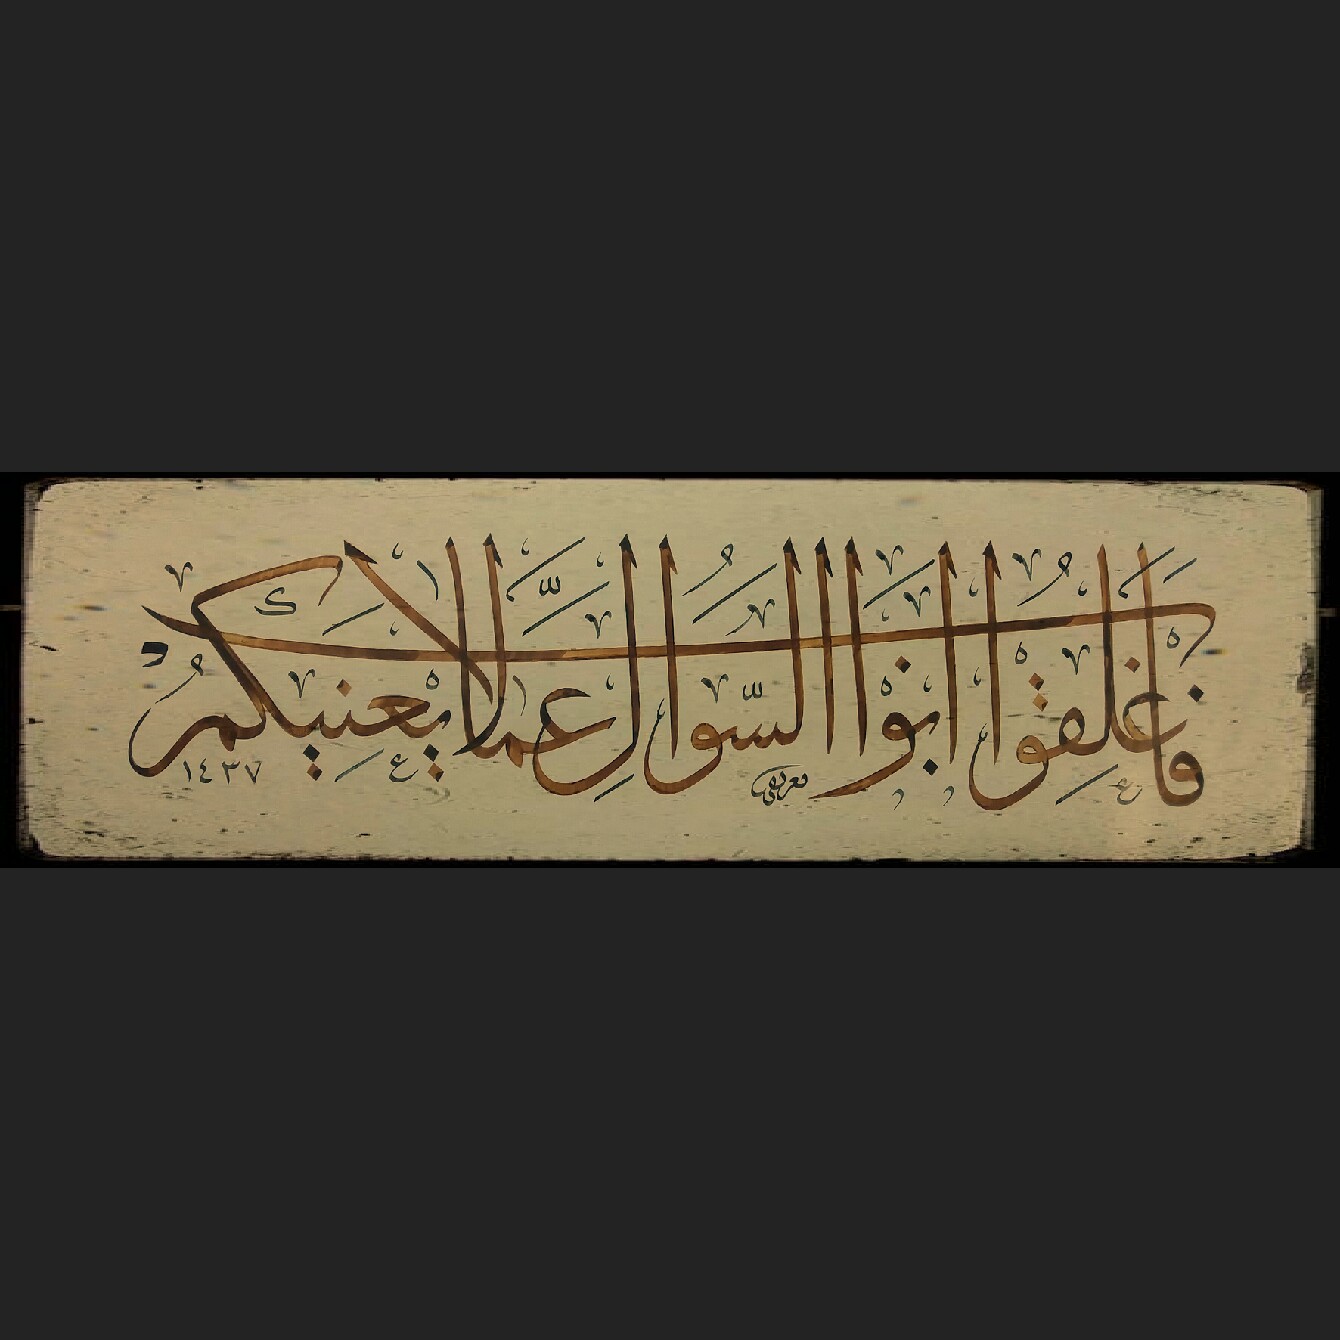 فَاغْلِقُوا ابْوَابَ السُّوَالِ عَمَّا لَا يَعْنِيكُمْ
١٤٣٧